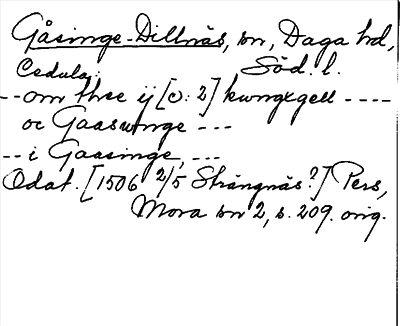 Gåsinge-Dillnäs, sn, Daga hd,
Cedula. Söd. l.
-- om thse ij [ɔ: 2] kungxgell ----
oc Gaaswnge ---
-- i Gaasinge, ---
Odat. [1506 2/5 Strängnäs?] Pers,
Mora sn 2, s. 209. orig.